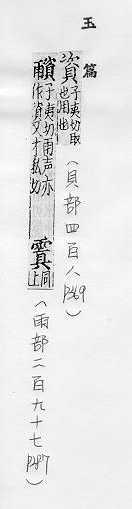 玉篇
資子夷切取也用也
(貝部四百八 P369)
子夷切雨声亦作資又才私切
同上
(雨部二百九十七 P287)